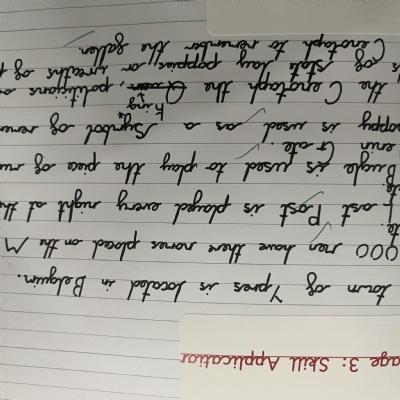 age 3: Skill Application
town of Ypres is located in Belgium.
000 men have there names placed on the M
Last Post is played every night at th
Bugle is used to play the piece of mu
enin Gate.
poppy is used as a symbol of reme
King
the Cenotaph the Queen, politicians
of state lay poppies, or wreaths of
Cenotaph to remember the fallen